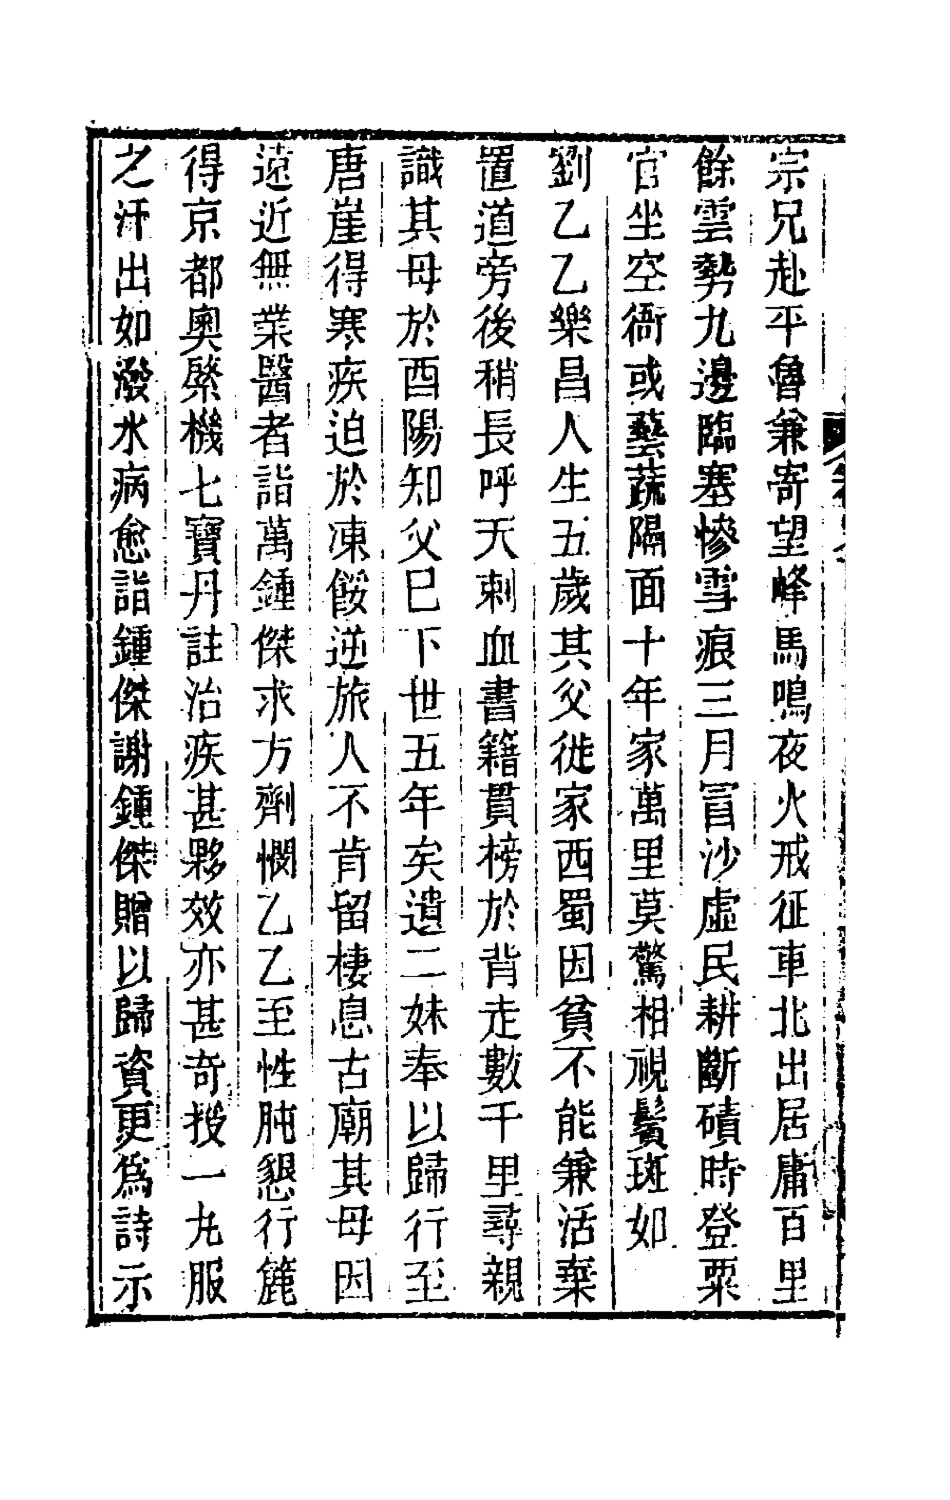 宗兄赴平魯兼寄望峰馬鳴夜火戒征車北出居庸百里
餘雲勢九邊臨塞慘雪痕三月冒沙虛民耕斷磧時登粟
官坐空衙或藝蔬隔面十年家萬里莫驚相視鬢斑如
劉乙乙樂昌人生五歲其父徙家西蜀因貧不能兼活棄
置道旁後稍長呼天刺血書籍貫榜於背走數千里尋親
識其母於酉陽知父巳下世五年矣遺二妹奉以歸行至
唐崖得寒疾迫於凍餒逆旅人不肯留棲息古廟其母因
遠近無業醫者詣萬鍾傑求方劑憫乙乙至性肫懇行簏
得京都奧縏機七寶丹註治疾甚夥效亦甚奇授一丸服
之汗出如潑水病愈詣鍾傑謝鍾傑贈以歸資更爲詩示